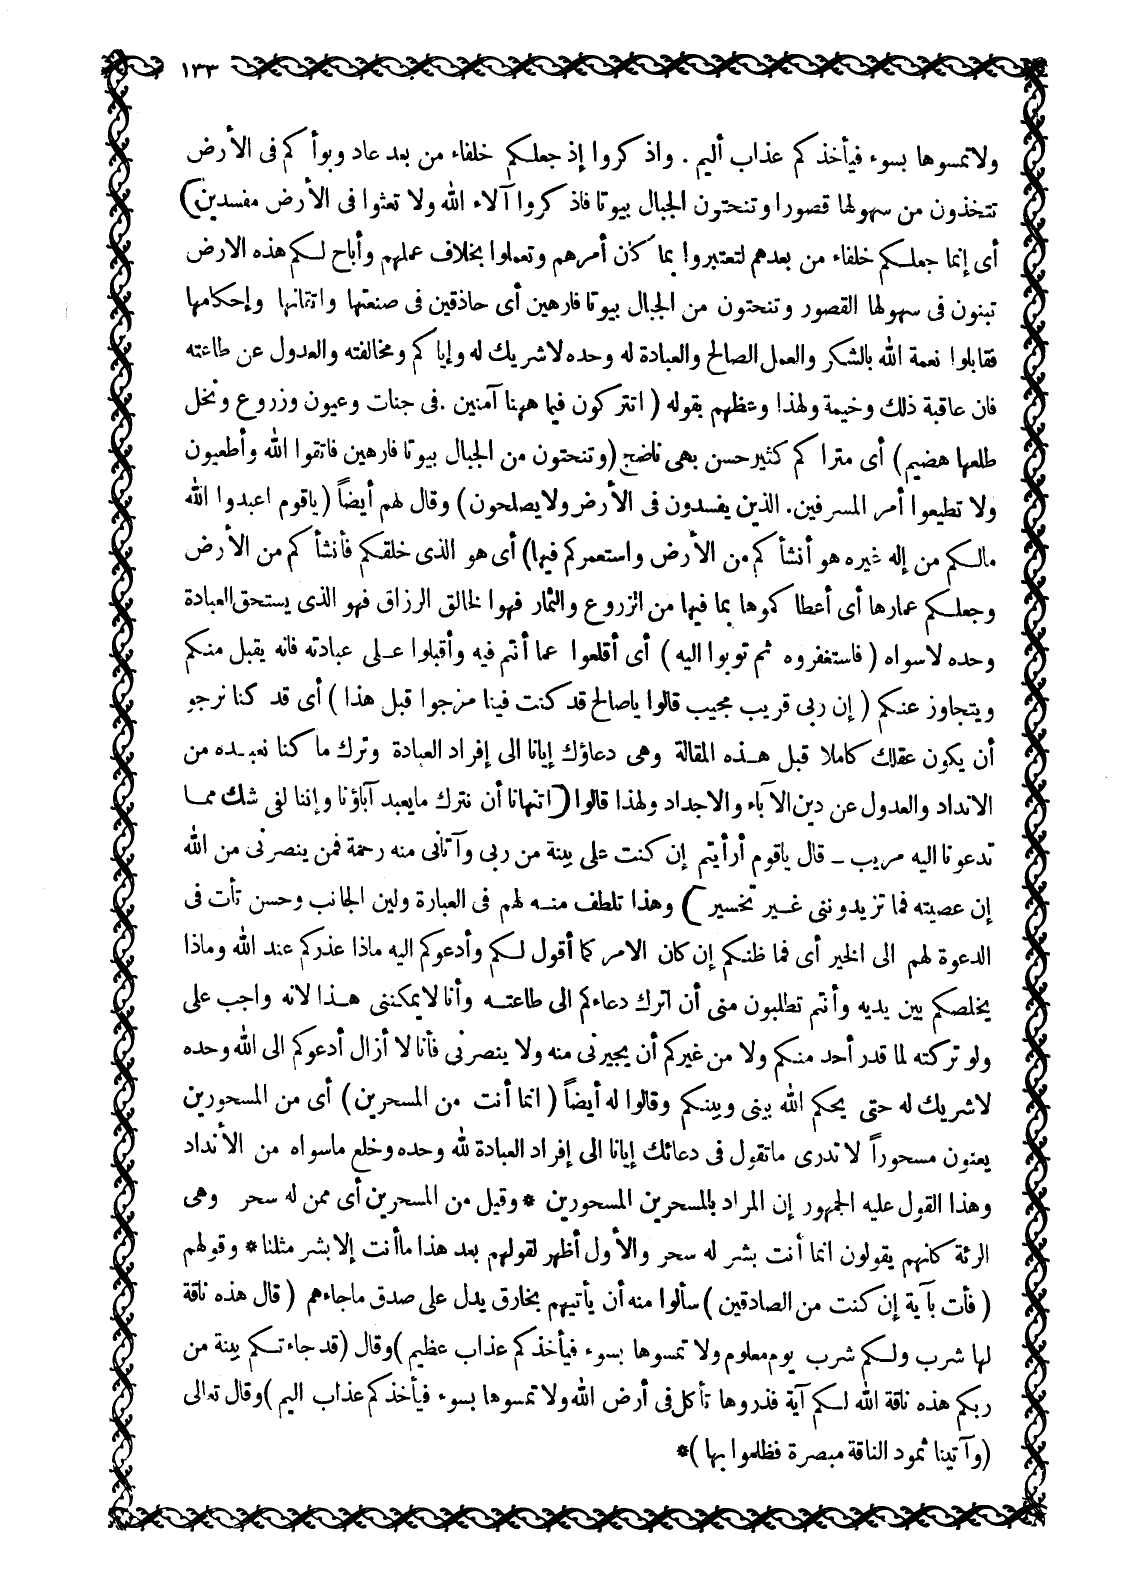 ١٣٣
ولا تمسوها بسوء فيأخذكم عذاب أليم . واذكروا إذ جعلكم خلفاء من بعد عاد وبوأكم فى الأرض
تتخذون من سهولها قصورا وتنحتون الجبال بيوتا فاذكروا آلاء الله ولا تعثوا فى الأرض مفسدين)
أى إنما جعلكم خلفاء من بعدهم لتعتبروا بما كان أمرهم وتعملوا بخلاف عملهم وأباح لكم هذه الارض
تبنون فى سهولها القصور وتنحتون من الجبال بيوتا فارهين أى حاذقين فى صنعتها واتقانها وإحكامها
فقابلوا نعمة الله بالشكر والعمل الصالح والعبادة له وحده لا شريك له وإياكم ومخالفته والعدول عن طاعته
فان عاقبة ذلك وخيمة ولهذا وعظهم بقوله ( اتتركون فيما ههنا آمنين . فى جنات وعيون وزروع ونخل
طلعها هضيم) أى متراكم كثير حسن بهى ناضج (وتنحتون من الجبال بيوتا فارهين فاتقوا الله وأطعيون
ولا تطيعوا أمر المسرفين. الذين يفسدون فى الأرض ولا يصلحون) وقال لهم أيضاً (ياقوم اعبدوا الله
مالكم من إله غيره هو أنشأكم من الأرض واستعمركم فيها) أى هو الذى خلقكم فأنشأكم من الأرض
وجعلكم عمارها أى أعطاكموها بما فيها من الزروع والثمار فهوا لخالق الرزاق فهو الذى يستحق العبادة
وحده لاسواه ( فاستغفروه ثم توبوا اليه ) أى أقلعوا عما أنتم فيه وأقبلوا على عبادته فانه يقبل منكم
ويتجاوز عنكم ( إن ربى قريب مجيب قالوا ياصالح قد كنت فينا مرجوا قبل هذا ) أى قد كنا نرجو
أن يكون عقلك كاملا قبل هذه المقالة وهى دعاؤك إيانا الى إفراد العبادة وترك ما كنا نعبده من
الانداد والعدول عن دين الآباء والاجداد ولهذا قالوا ( اتنهانا أن نترك مايعبد آباؤنا وإننا لفى شك مما
تدعونا اليه مريب ـ قال ياقوم أرأيتم إن كنت على بينة من ربى وآتانى منه رحمة فمن ينصرنى من الله
إن عصيته فما تزيدوننى غير تخسير ) وهذا تلطف منه لهم فى العبارة ولين الجانب وحسن تأت فى
الدعوة لهم الى الخير أى فما ظنكم إن كان الامر كما أقول لكم وأدعوكم اليه ماذا عذركم عند الله وماذا
يخلصكم بين يديه وأنتم تطلبون منى أن اترك دعاءكم الى طاعته وأنا لايمكننى هذا لانه واجب على
ولو تركته لما قدر أحد منكم ولا من غيركم أن يجيرنى منه ولا ينصرنى فأنا لا أزال أدعوكم الى الله وحده
لاشريك له حتى يحكم الله بينى وبينكم وقالوا له أيضاً ( انما أنت من المسحرين ) أى من المسحورين
يعنون مسحوراً لا تدرى ماتقول فى دعائك إيانا الى إفراد العبادة لله وحده وخلع ماسواه من الأنداد
وهذا القول عليه الجمهور إن المراد بالمسحرين المسحورين * وقيل من المسحرين أى ممن له سحر وهى
الرئة كانهم يقولون انما أنت بشر له سحر والأول أظهر لقولهم بعد هذا ماأنت إلا بشر مثلنا * وقولهم
( فأت بآية إن كنت من الصادقين ) سألوا منه أن يأتيهم بخارق يدل على صدق ماجاءهم ( قال هذه ناقة
لها شرب ولكم شرب يوم معلوم ولا تمسوها بسوء فيأخذكم عذاب عظيم )وقال (قد جاءتكم بينة من
ربكم هذه ناقة الله لكم آية فذروها تأكل فى أرض الله ولا تمسوها بسوء فيأخذكم عذاب اليم )وقال تعالى
(وآتينا ثمود الناقة مبصرة فظلموا بها )*